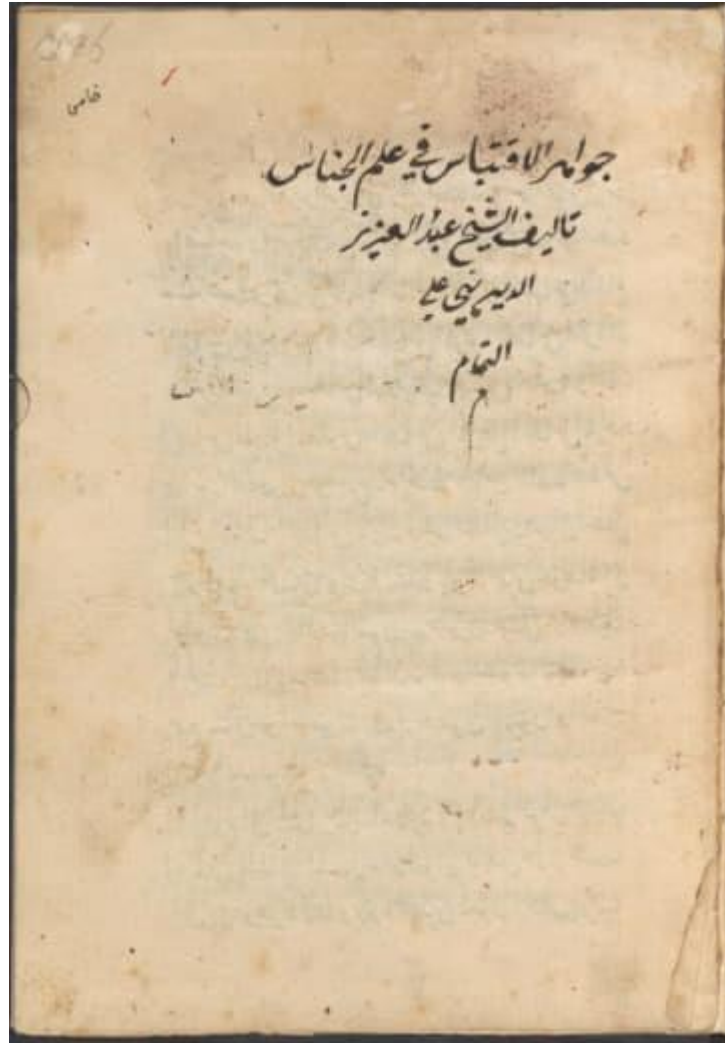 خامس
جواهر الاقتباس في علم الجناس
تاليف الشيخ عبد العزيز
الديريني علي
التمام
م